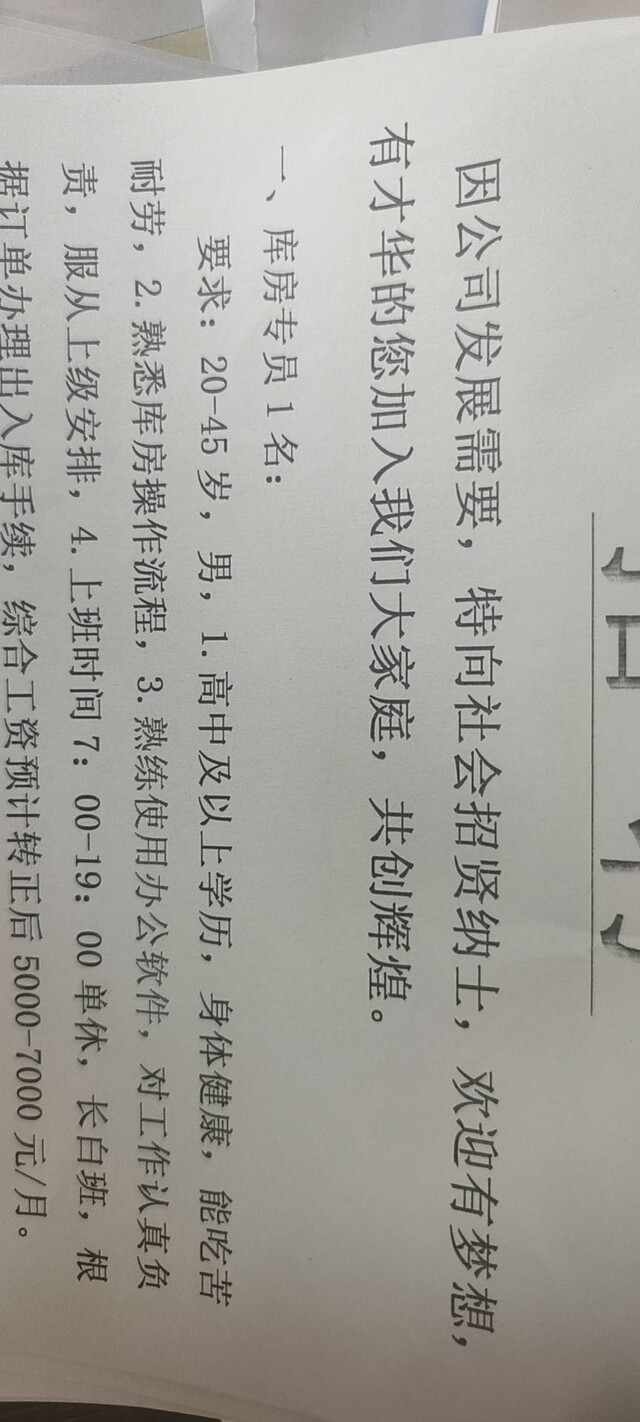 因公司发展需要，特向社会招贤纳士，欢迎有梦想，
有才华的您加入我们大家庭，共创辉煌。
一、库房专员1名：
要求：20-45岁，男，1.高中及以上学历，身体健康，能吃苦
耐劳，2.熟悉库房操作流程，3.熟练使用办公软件，对工作认真负
责，服从上级安排，4.上班时间7：00-19：00单休，长白班，根
据订单办理出入库手续，综合工资预计转正后5000-7000元/月。